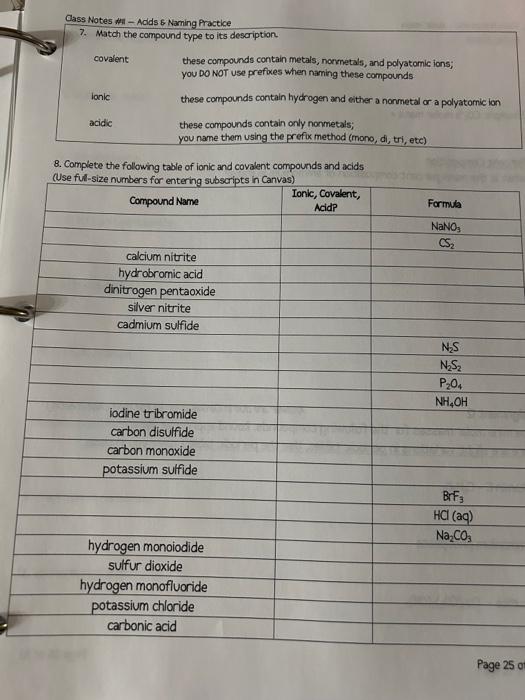 Class Notes #11 – Acids & Naming Practice
7. Match the compound type to its description.
covalent these compounds contain metals, nonmetals, and polyatomic ions;
you DO NOT use prefixes when naming these compounds
ionic these compounds contain hydrogen and either a nonmetal or a polyatomic ion
acidic these compounds contain only nonmetals;
you name them using the prefix method (mono, di, tri, etc)
8. Complete the following table of ionic and covalent compounds and acids
(Use full-size numbers for entering subscripts in Canvas)
Compound Name Ionic, Covalent, Acid? Formula
NaNO₃
CS₂
calcium nitrite
hydrobromic acid
dinitrogen pentaoxide
silver nitrite
cadmium sulfide
N₂S
N₂S₂
P₂O₄
NH₄OH
iodine tribromide
carbon disulfide
carbon monoxide
potassium sulfide
BrF₃
HCl (aq)
Na₂CO₃
hydrogen monoiodide
sulfur dioxide
hydrogen monofluoride
potassium chloride
carbonic acid
Page 25 of